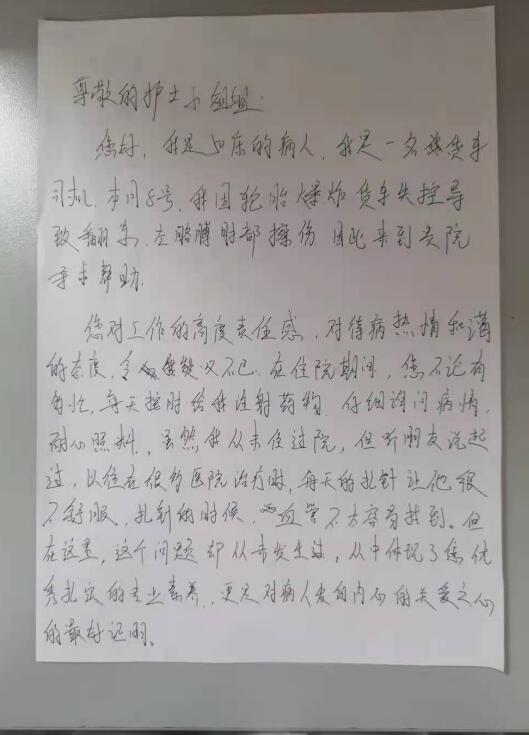 尊敬的护士小姐姐：
您好，我是50床的病人，我是一名货车
司机，本月8号，我因轮胎爆炸货车失控导
致翻车，左胳膊肘部擦伤因此来到贵院
寻求帮助。
您对工作的高度责任感，对待病热情和蔼
的态度，令我赞叹不已，在住院期间，您不论有
多忙，每天按时给我注射药物，仔细询问病情，
耐心照料，虽然我从未住过院，但听朋友说起
过，以往在很多医院治疗时，每天的扎针让他很
不舒服，扎针的时候，血管不方容易找到。但
在这里，这个问题却从未发生过，从中体现了您优
秀扎实的专业素养，更是对病人发自内心的关爱之心
的最好证明。